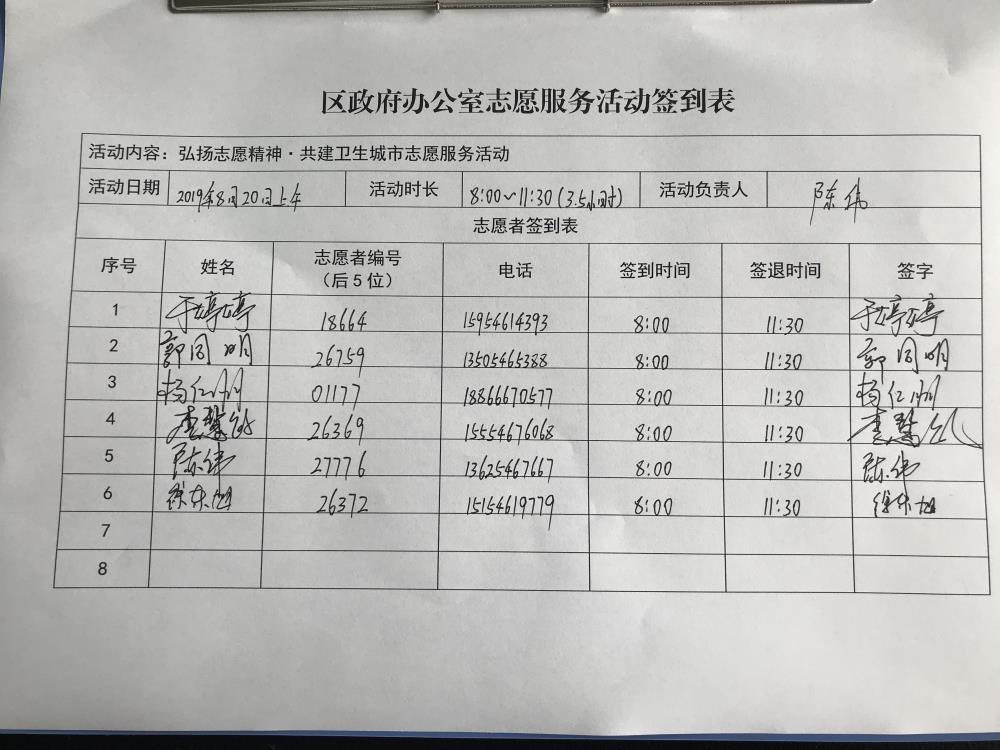 区政府办公室志愿服务活动签到表
活动内容：弘扬志愿精神·共建卫生城市志愿服务活动
活动日期 2019年8月20日上午 活动时长 8:00~11:30(3.5小时) 活动负责人 陈伟
志愿者签到表
序号 姓名 志愿者编号（后5位） 电话 签到时间 签退时间 签字
1 于婷婷 18664 15954614393 8:00 11:30 于婷婷
2 郭同明 26759 13505465388 8:00 11:30 郭同明
3 杨仁洲 01177 18866670577 8:00 11:30 杨仁洲
4 李慧 26369 15554676068 8:00 11:30 李慧
5 陈伟 27776 13625467667 8:00 11:30 陈伟
6 徐东旭 26372 15154619779 8:00 11:30 徐东旭
7
8